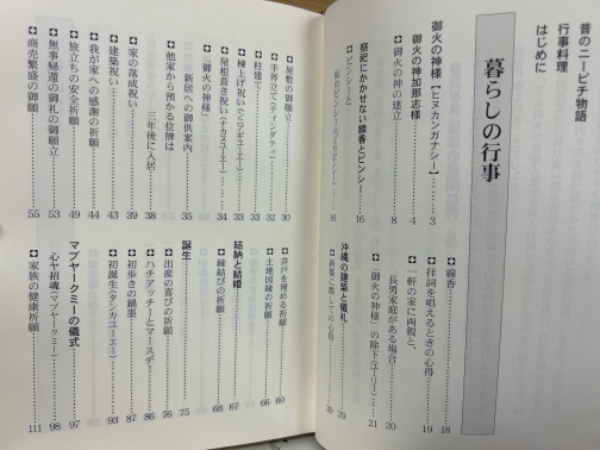 昔のニービチ物語
行事料理
はじめに
暮らしの行事
御火の神様【ヒヌカンガナシー】………3
御火の神加那志様………4
御火の神の建立………8
祭祀にかかせない線香とビンシー………16
ビンシーと
線香………18
拝詞を唱えるときの心得………19
一軒の家に両親と、
長男家庭がある場合………20
「御火の神様」の除下(ユーリー)………21
沖縄の建築と儀礼………29
新築に際しての心得………30
屋敷の御願立………30
手斧立て(ティンダティ)………32
柱建て………33
棟上げ祝い(ンニアギユーエー)………33
屋根葺き祝い(イチカブユーエー)………34
「御火の神様」
新居への御供案内………35
他家から預かる位牌は
三年後に入居………38
家の落成祝い………39
建築祝い………43
我が家への感謝の祈願………44
旅立ちの安全祈願………49
無事帰還の御礼の御願立………53
商売繁盛の御願………55
井戸を埋める祈願………60
土地因縁の祈願………66
結納と結婚………67
縁結びの祈願………68
誕生………75
出産の喜びの祈願………76
ハチアッチーとマースデー………86
初歩きの鍋墨………87
初誕生(タンカユーエー)………93
マブヤークミーの儀式………97
心ヤ招魂(マブヤークミー)………98
家族の健康祈願………111